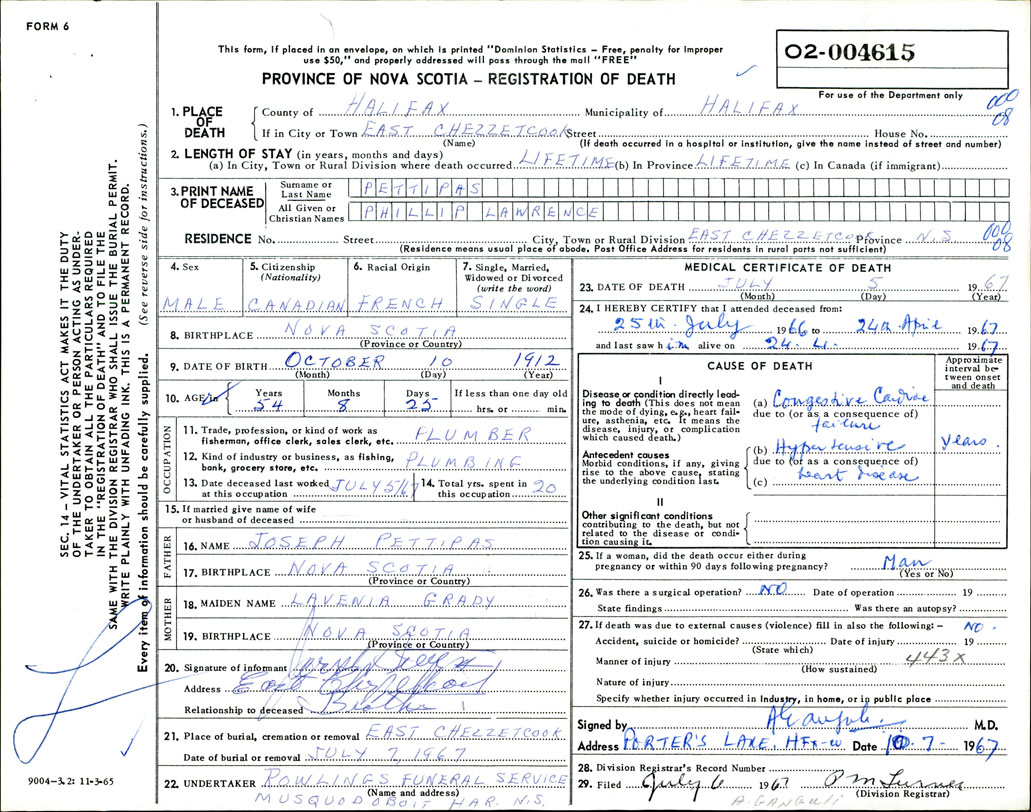 FORM 6
This form, if placed in an envelope, on which is printed "Dominion Statistics – Free, penalty for improper
use $50," and properly addressed will pass through the mail "FREE"
O2-004615
PROVINCE OF NOVA SCOTIA – REGISTRATION OF DEATH
For use of the Department only
1. PLACE OF DEATH County of HALIFAX Municipality of HALIFAX 000 08
If in City or Town EAST CHEZZETCOOK Street House No.
(Name) (If death occurred in a hospital or institution, give the name instead of street and number)
2. LENGTH OF STAY (in years, months and days)
(a) In City, Town or Rural Division where death occurred LIFETIME (b) In Province LIFETIME (c) In Canada (if immigrant)
3. PRINT NAME OF DECEASED
Surname or Last Name PETTIPAS
All Given or Christian Names PHILLIP LAWRENCE
RESIDENCE No. Street City, Town or Rural Division EAST CHEZZETCOOK Province N.S. 000 08
(Residence means usual place of abode. Post Office Address for residents in rural parts not sufficient)
4. Sex MALE
5. Citizenship (Nationality) CANADIAN
6. Racial Origin FRENCH
7. Single, Married, Widowed or Divorced (write the word) SINGLE
8. BIRTHPLACE NOVA SCOTIA
(Province or Country)
9. DATE OF BIRTH OCTOBER 10 1912
(Month) (Day) (Year)
10. AGE in Years Months Days If less than one day old
54 8 25 hrs. or min.
OCCUPATION
11. Trade, profession, or kind of work as fisherman, office clerk, sales clerk, etc. PLUMBER
12. Kind of industry or business, as fishing, bank, grocery store, etc. PLUMBING
13. Date deceased last worked at this occupation JULY 5/67
14. Total yrs. spent in this occupation 20
15. If married give name of wife or husband of deceased
FATHER
16. NAME JOSEPH PETTIPAS
17. BIRTHPLACE NOVA SCOTIA
(Province or Country)
MOTHER
18. MAIDEN NAME LAVENIA GRADY
19. BIRTHPLACE NOVA SCOTIA
(Province or Country)
20. Signature of informant
Address East Chezzetcook
Relationship to deceased Brother
21. Place of burial, cremation or removal EAST CHEZZETCOOK
Date of burial or removal JULY 7, 1967
22. UNDERTAKER POWLINGS FUNERAL SERVICE
(Name and address)
MUSQUODOBOIT HAR. N.S.
MEDICAL CERTIFICATE OF DEATH
23. DATE OF DEATH JULY 5 1967
(Month) (Day) (Year)
24. I HEREBY CERTIFY that I attended deceased from:
25th July 1966 to 24th April 1967
and last saw him alive on 24. 4. 1967
CAUSE OF DEATH
Approximate interval between onset and death
I
Disease or condition directly leading to death (This does not mean the mode of dying, e.g., heart failure, asthenia, etc. It means the disease, injury, or complication which caused death.)
(a) Congestive Cardiac failure
due to (or as a consequence of)
Antecedent causes
Morbid conditions, if any, giving rise to the above cause, stating the underlying condition last.
(b) Hypertensive Years.
due to (or as a consequence of)
heart disease
(c)
II
Other significant conditions
contributing to the death, but not related to the disease or condition causing it.
25. If a woman, did the death occur either during pregnancy or within 90 days following pregnancy? Man
(Yes or No)
26. Was there a surgical operation? NO Date of operation 19
State findings Was there an autopsy?
27. If death was due to external causes (violence) fill in also the following: – NO.
Accident, suicide or homicide? Date of injury 19
(State which)
443X
Manner of injury
(How sustained)
Nature of injury
Specify whether injury occurred in Industry, in home, or in public place
Signed by M.D.
Address PORTER'S LAKE, HFX-co Date 10. 7- 1967
28. Division Registrar's Record Number
29. Filed July 6 1967 P M Turner
(Division Registrar)
A. GANGULI
SEC. 14 – VITAL STATISTICS ACT MAKES IT THE DUTY
OF THE UNDERTAKER OR PERSON ACTING AS UNDER-
TAKER TO OBTAIN ALL THE PARTICULARS REQUIRED
IN THE "REGISTRATION OF DEATH" AND TO FILE THE
SAME WITH THE DIVISION REGISTRAR WHO SHALL ISSUE THE BURIAL PERMIT.
WRITE PLAINLY WITH UNFADING INK. THIS IS A PERMANENT RECORD.
Every item of information should be carefully supplied. (See reverse side for instructions.)
9004-3.2: 11-3-65